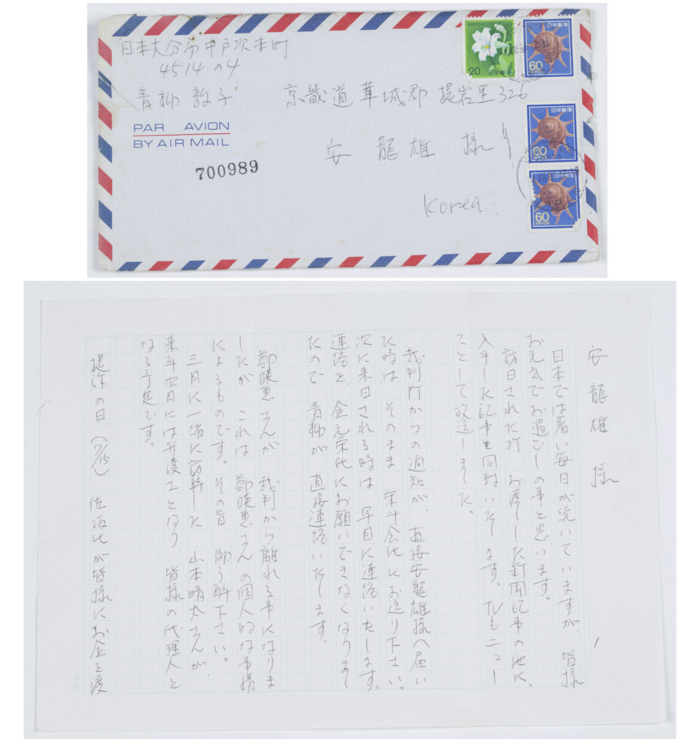 日本大分市中戸次本町
4514の4
青柳 敦子
PAR AVION
BY AIR MAIL
700989
京畿道華城郡 提岩里 326
安 龍 雄 様
Korea
20
日本郵便
60
日本郵便
60
日本郵便
60
安 龍 雄 様
日本では暑い毎日が続いていますが、皆様
お元気でお過ごしの事と思います。
訪日された折、お渡しした新聞記事の他に、
入手した記事を同封いたします。TVもニュー
スとして放送しました。
裁判所からの通知が、直接安龍雄様へ届い
た時は、そのまま 宋斗会氏にお送り下さい。
次に来日される時は、早目に連絡いたします。
連絡を、金元栄氏にお願いできなくなりまし
たので、青柳が 直接連絡いたします。
鄭暎恵さんが 裁判から離れる事になりま
したが、これは 鄭暎恵さんの個人的な事情
によるものです。その旨 御了解下さい。
三月に一緒に訪韓した 山本晴太さんが、
来年四月には弁護士となり、皆様の代理人と
なる予定です。
の日、(7/15) 氏が皆様にお金を渡